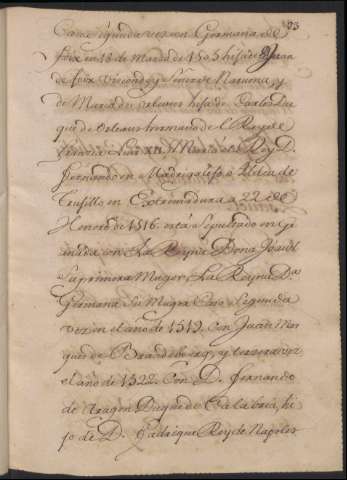 73
Casó segunda vez con Germana de
foix en 18 de Marzo de 1505 hija de Juan
de foix Vizconde y Señor de Narvona, y
de Maria de orleans hija de Carlos Du
que de orleans hermana de el Rey de
francia Luis XII. Murió el Rey D.
fernando en Madrigalejo Aldea de
Trujillo en Extremadura a 22 de
Henero de 1516. está sepultado en Gra
nada con La Reyna Dona Isavel
su primera Muger. La Reyna Da
Germana su Muger Caso segunda
vez en el año de 1519. Con Juan Mar
ques de Brandeburg, y tercera vez
el año de 1522. Con D. fernando
de Aragon Duque de Calabria, hi
jo de D. fadrique Rey de Napoles